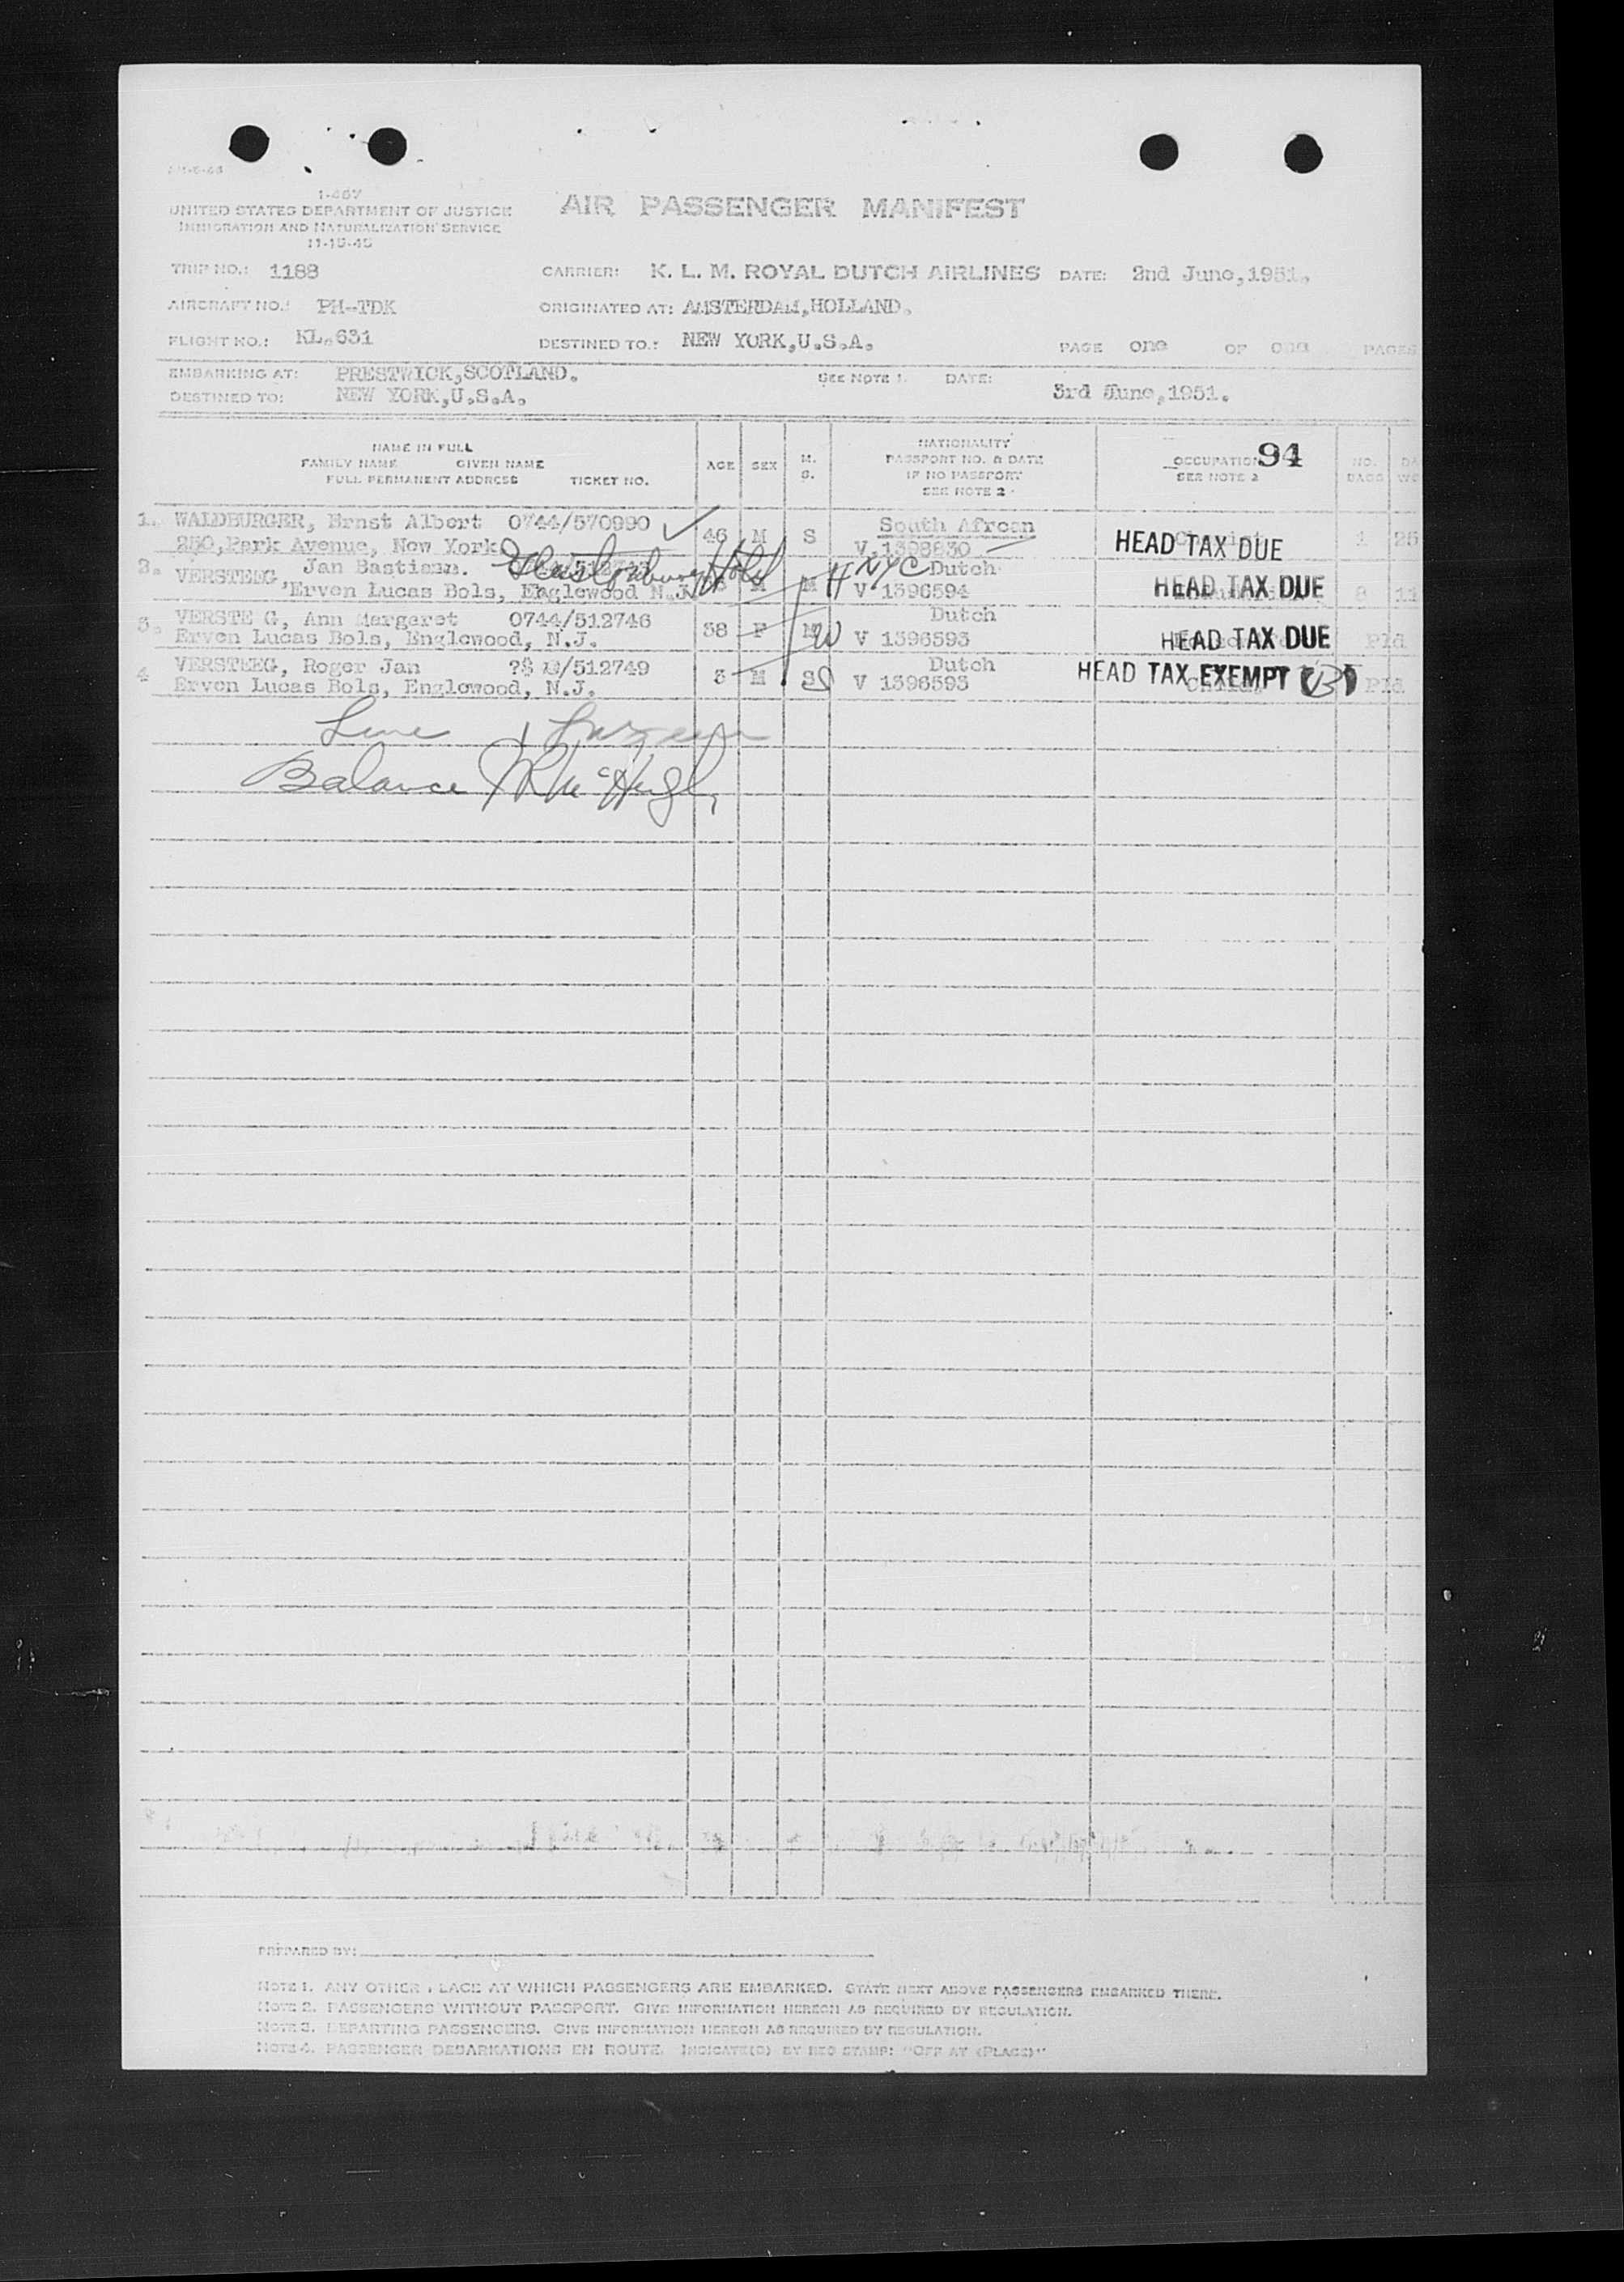 I-467
UNITED STATES DEPARTMENT OF JUSTICE
IMMIGRATION AND NATURALIZATION SERVICE
11-15-45
AIR PASSENGER MANIFEST
TRIP NO.: 1188 CARRIER: K. L. M. ROYAL DUTCH AIRLINES DATE: 2nd June,1951.
AIRCRAFT NO.: PH-TDK ORIGINATED AT: AMSTERDAM,HOLLAND.
FLIGHT NO.: KL.631 DESTINED TO.: NEW YORK,U.S.A. PAGE one OF one PAGES
EMBARKING AT: PRESTWICK,SCOTLAND. SEE NOTE 1. DATE: 3rd June,1951.
DESTINED TO: NEW YORK,U.S.A.
NAME IN FULL
FAMILY NAME GIVEN NAME
FULL PERMANENT ADDRESS TICKET NO.
AGE SEX M. S.
NATIONALITY
PASSPORT NO. & DATE
IF NO PASSPORT
SEE NOTE 2
OCCUPATION 94
SEE NOTE 2
NO. BAGS
1. WALDBURGER, Ernst Albert 0744/570990 46 M S South Afrcan HEAD TAX DUE 1 25
250,Park Avenue, New York V.1398830
2. VERSTEEG, Jan Bastiaan. M M H NYC Dutch HEAD TAX DUE
'Erven Lucas Bols, Englewood N.J. V 1396594
3. VERSTE G, Ann Margaret 0744/512746 38 F M W Dutch HEAD TAX DUE Pld
Erven Lucas Bols, Englewood, N.J. V 1396593
4 VERSTEEG, Roger Jan /512749 3 M S Dutch HEAD TAX EXEMPT Pld
Erven Lucas Bols, Englewood, N.J. V 1396593
Line
Balance McHugh
PREPARED BY:
NOTE 1. ANY OTHER LACE AT WHICH PASSENGERS ARE EMBARKED. STATE NEXT ABOVE PASSENGERS EMBARKED THERE.
NOTE 2. PASSENGERS WITHOUT PASSPORT. GIVE INFORMATION HEREON AS REQUIRED BY REGULATION.
NOTE 3. DEPARTING PASSENGERS. GIVE INFORMATION HEREON AS REQUIRED BY REGULATION.
NOTE 4. PASSENGER DEBARKATIONS EN ROUTE. INDICATE(D) BY RED STAMP: "OFF AT (PLACE)"